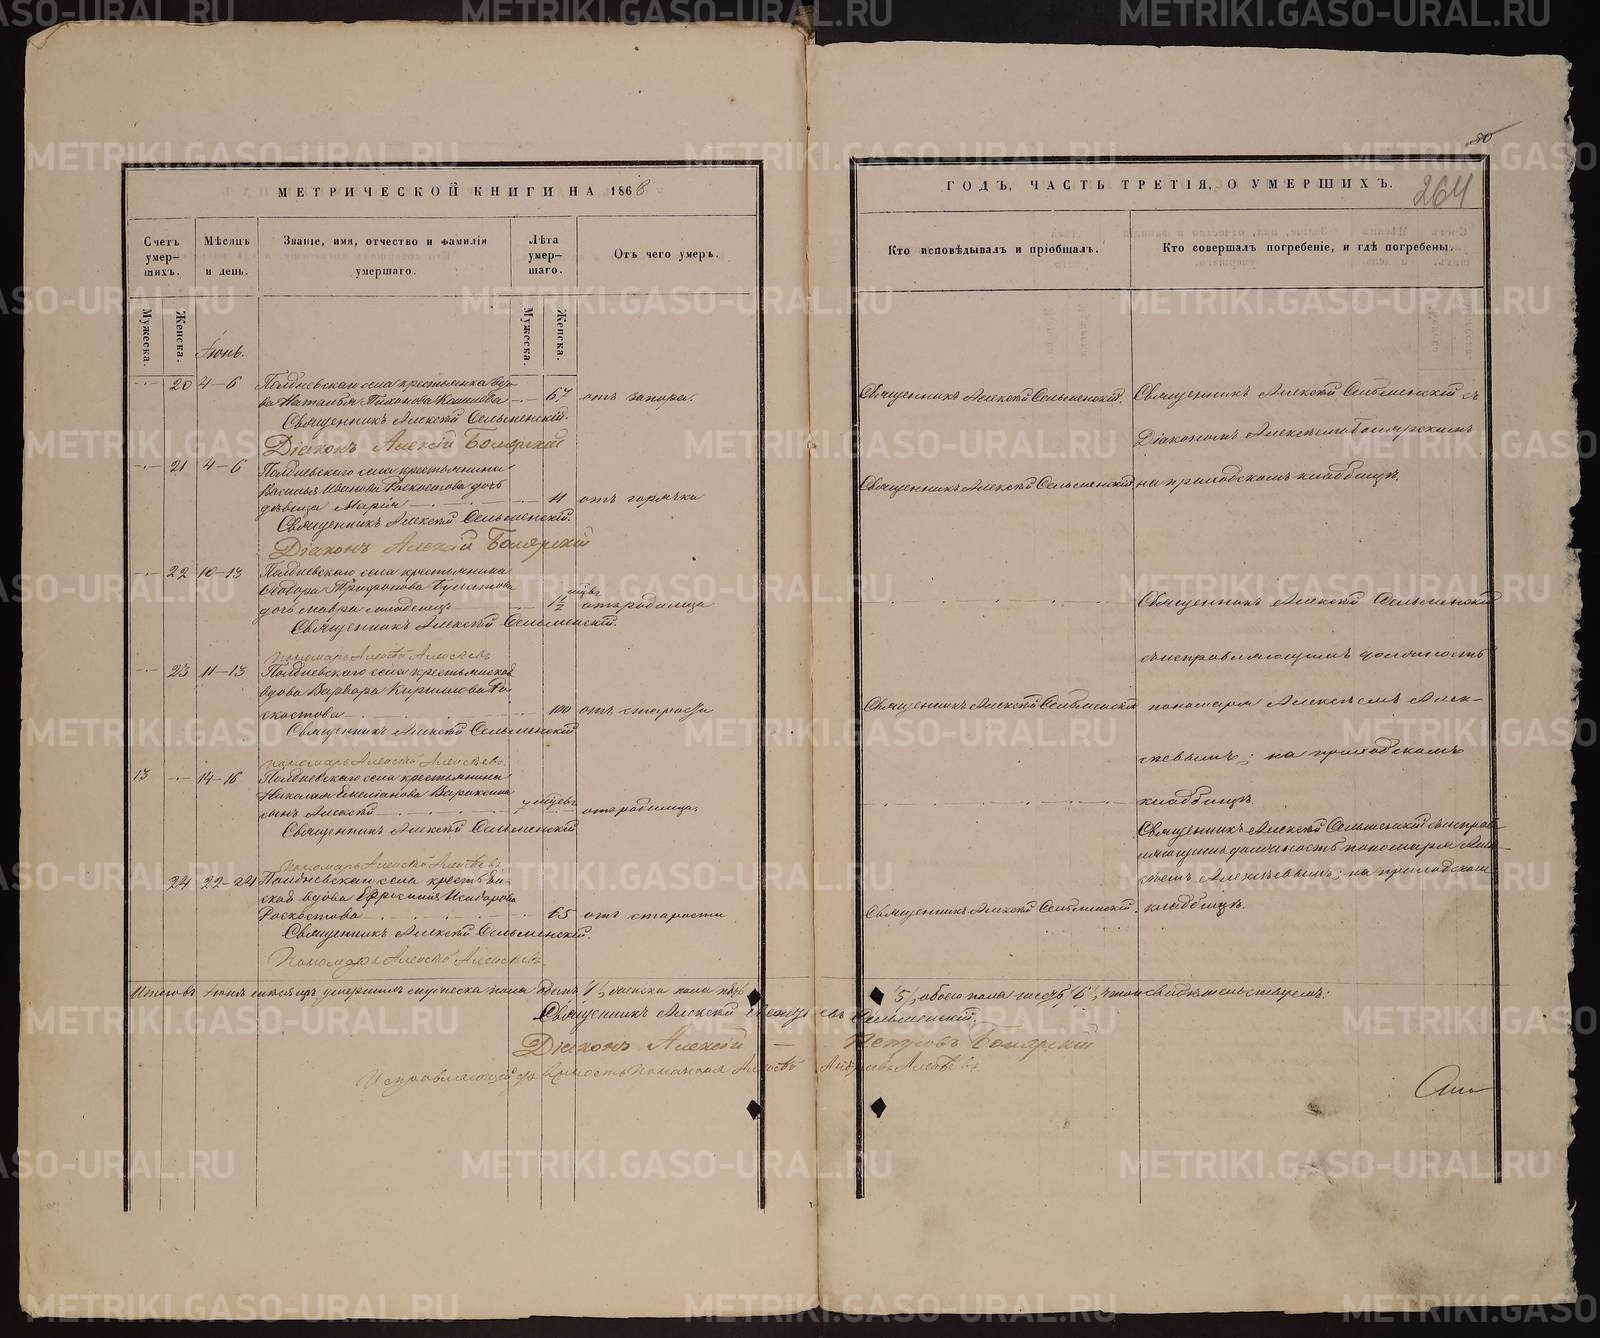 МЕТРИЧЕСКОЙ КНИГИ НА 1868
Счетъ умер-шихъ.
Мѣсяцъ и день.
Званіе, имя, отчество и фамилія умершаго.
Лѣта умер-шаго.
Отъ чего умеръ.
Мужеска.
Женска.
Мужеска.
Женска.
Іюнь.
20 4–6 Полдневскаго села крестьянка вдо-
ва Наталья Тихонова 67 отъ запора.
Священникъ Алексѣй Сельменскій.
Діаконъ Алексій Боярскій
21 4–6 Полдневскаго села крестьянина
Василья Иванова дочь
дѣвица Марія 11 отъ горячки
Священникъ Алексѣй Сельменскій.
Діаконъ Алексій Боярскій
22 10–13 Полдневскаго села крестьянина
Ѳедора Трифонова
дочь Мавра младенецъ 1½ отъ родимца
Священникъ Алексѣй Сельменскій.
Пономарь Алексѣй Алексѣевъ
23 11–13 Полдневскаго села крестьянская
вдова Варвара Кирилова Ро-
скостова 100 отъ старости
Священникъ Алексѣй Сельменскій
Пономарь Алексѣй Алексѣевъ
13 14–16 Полдневскаго села крестьянина
Николая Емельянова
сынъ Алексѣй отъ родимца.
Священникъ Алексѣй Сельменскій
Пономарь Алексѣй Алексѣевъ
24 22–24 Полдневскаго села
вдова Ефросинія Исидорова
Роскостова 65 отъ старости
Священникъ Алексѣй Сельменскій.
Пономарь Алексѣй Алексѣевъ
умершихъ мужеска пола одинъ /1/, женска пола пять
Священникъ Алексѣй
Діаконъ Алексій
ГОДЪ, ЧАСТЬ ТРЕТІЯ, О УМЕРШИХЪ.
264
Кто исповѣдывалъ и пріобщалъ.
Кто совершалъ погребеніе, и гдѣ погребены.
Священникъ Алексѣй Сельменскій.
Священникъ Алексѣй Сельменскій съ
Діакономъ Алексѣемъ Боярскимъ
Священникъ Алексѣй Сельменскій
на приходскомъ кладбищѣ.
Священникъ Алексѣй Сельменскій
съ исправляющимъ должность
Священникъ Алексѣй Сельменскій
пономаря Алексѣемъ Алек-
сѣевымъ; на приходскомъ
кладбищѣ.
Священникъ Алексѣй Сельменскій съ исправ-
ляющимъ должность пономаря Алек-
сѣемъ Алексѣевымъ; на приходскомъ
Священникъ Алексѣй Сельменскій.
кладбищѣ.
/5/, обоего пола шесть /6/, въ томъ свидѣтельствуемъ:
Сельменскій.
Боярскій
METRIKI.GASO-URAL.RU